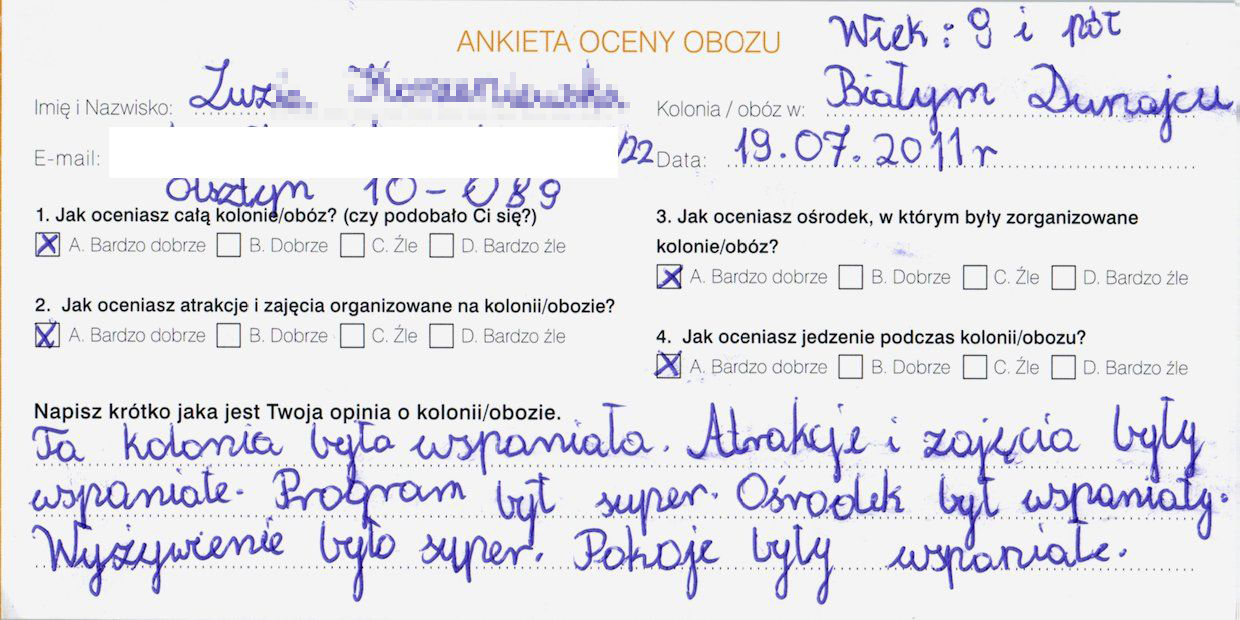 ANKIETA OCENY OBOZU
Wiek: 9 i pół
Imię i Nazwisko:
Kolonia / obóz w: Białym Dunajcu
E-mail: /22
Data: 19.07.2011r
Olsztyn 10-089
1. Jak oceniasz całą kolonię/obóz? (czy podobało Ci się?)
A. Bardzo dobrze B. Dobrze C. Źle D. Bardzo źle
2. Jak oceniasz atrakcje i zajęcia organizowane na kolonii/obozie?
A. Bardzo dobrze B. Dobrze C. Źle D. Bardzo źle
3. Jak oceniasz ośrodek, w którym były zorganizowane
kolonie/obóz?
A. Bardzo dobrze B. Dobrze C. Źle D. Bardzo źle
4. Jak oceniasz jedzenie podczas kolonii/obozu?
A. Bardzo dobrze B. Dobrze C. Źle D. Bardzo źle
Napisz krótko jaka jest Twoja opinia o kolonii/obozie.
Ta kolonia była wspaniała. Atrakcje i zajęcia były
wspaniałe. Program był super. Ośrodek był wspaniały.
Wyżywienie było super. Pokoje były wspaniałe.